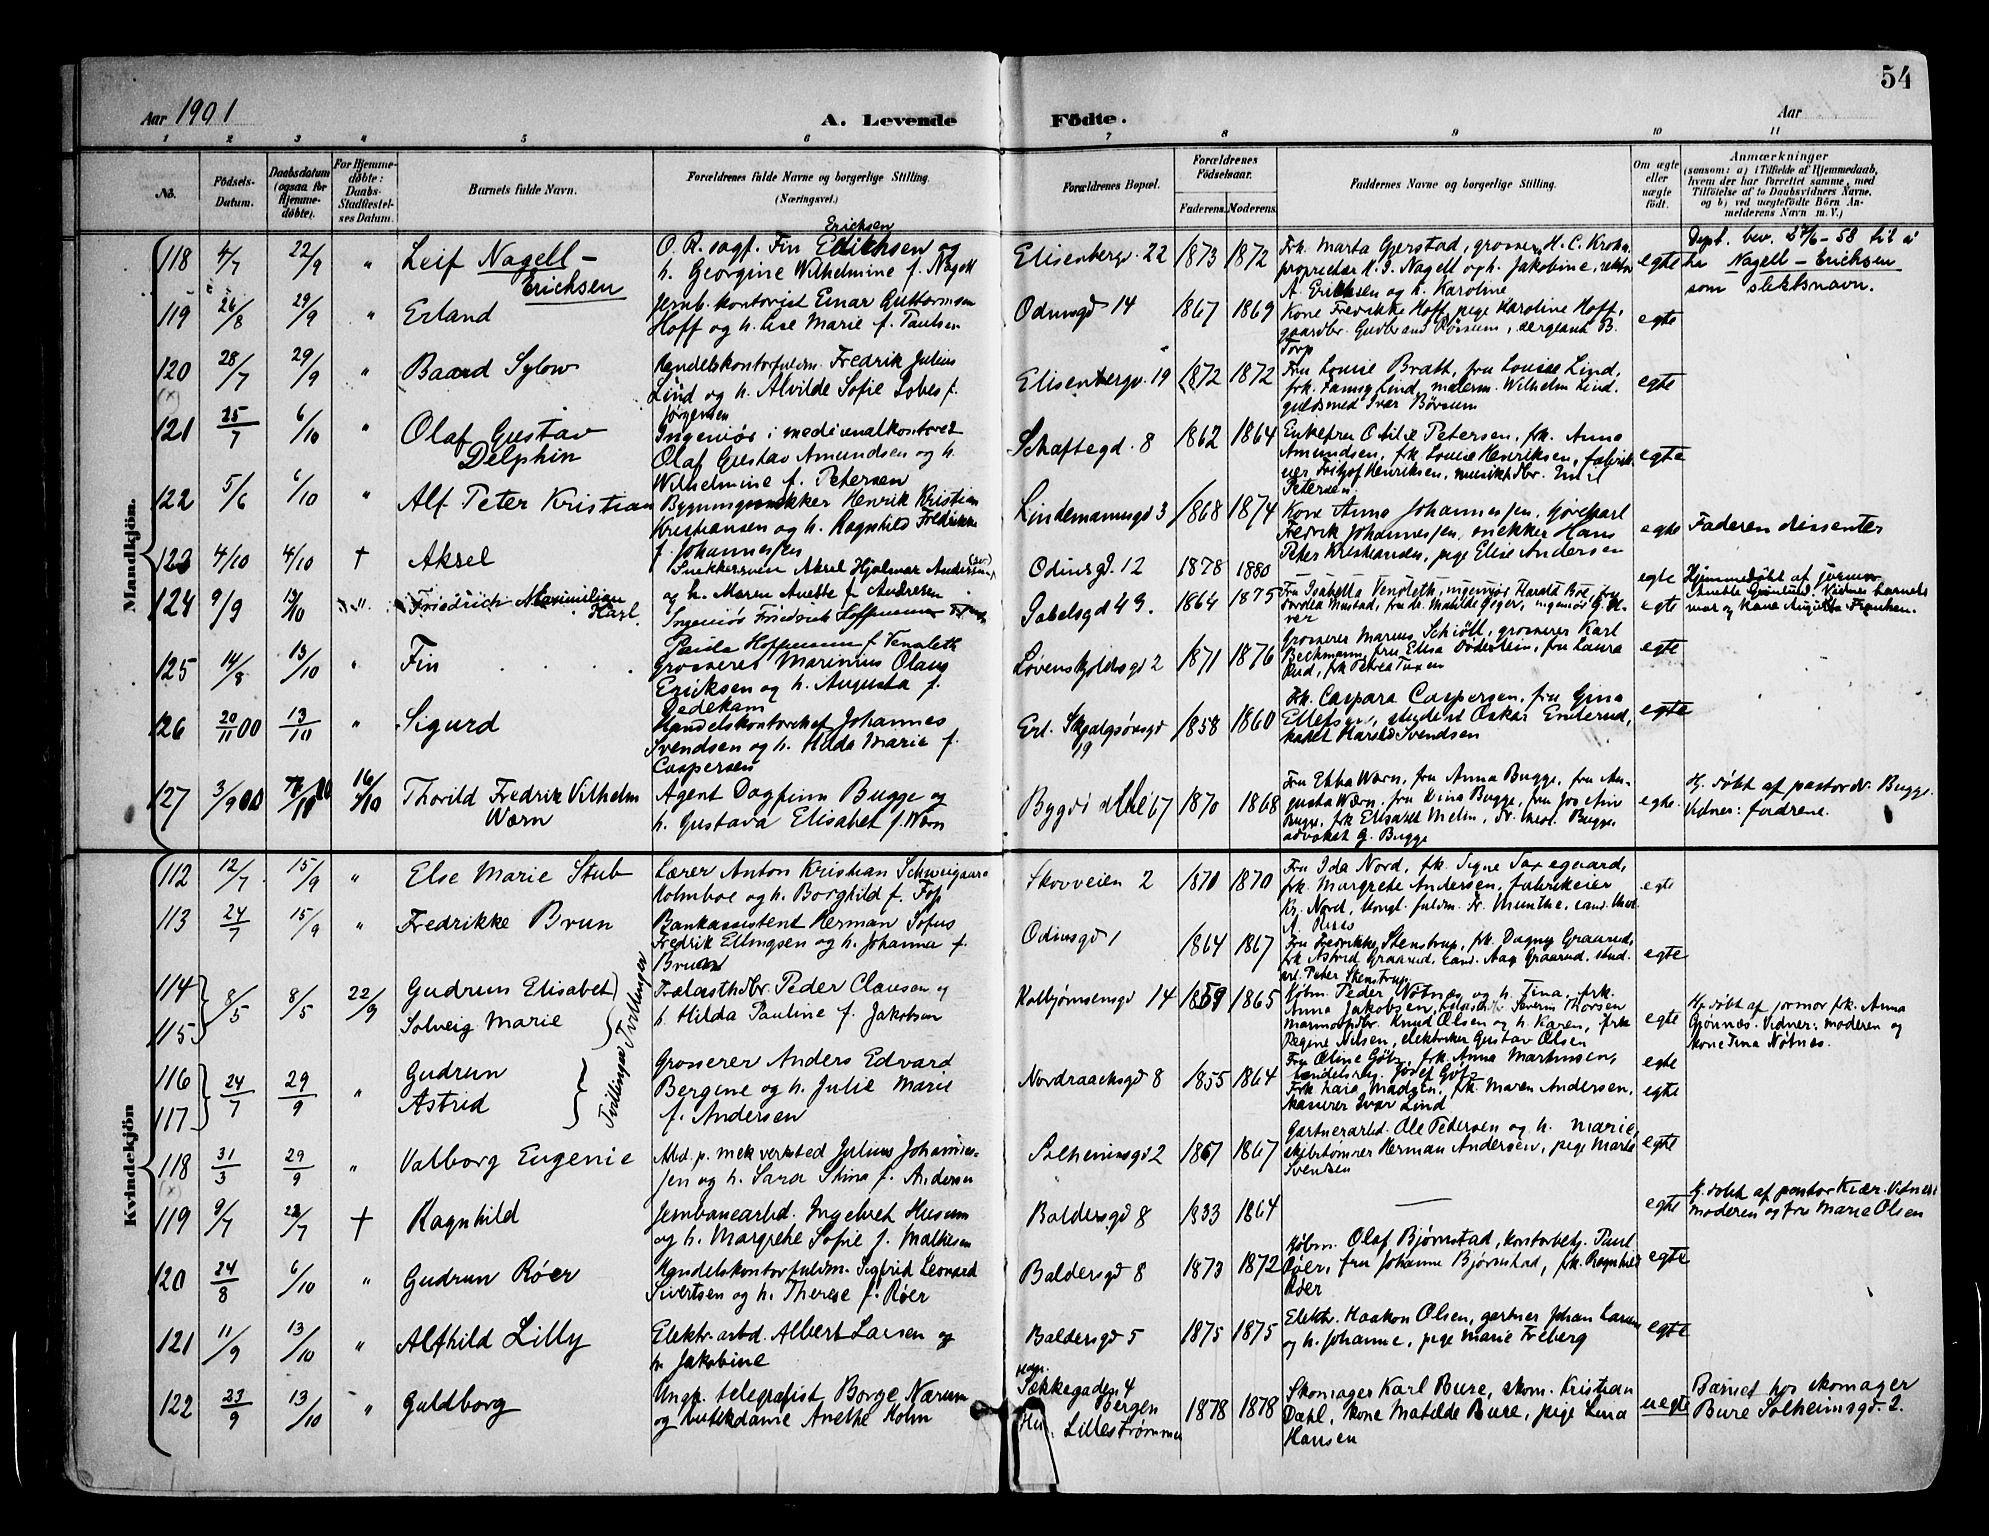 54
Aar 1901
A. Levende Födte.
Aar
1 2 3 4 5 6 7 8 9 10 11
No. Födsels-Datum. Daabsdatum (ogsaa for Hjemme-døbte). For Hjemme-døbte: Daabs-Stadfæstel-ses Datum. Barnets fulde Navn. Forældrenes fulde Navne og borgerlige Stilling. (Næringsvei.) Forældrenes Bopæl. Forældrenes Fødselsaar. Faderens. Moderens. Faddernes Navne og borgerlige Stilling. Om ægte eller uægte født. Anmærkninger (saasom: a) i Tilfælde af Hjemmedaab, hvem der har forrettet samme, med Tilføielse af to Daabsvidners Navne, og b) ved uægtefødte Börn An-melderens Navn m. V.)
Mandkjön.
118 4/7 22/9 " Leif Nagell - Erichsen
O. R. sagf. Fin Erichsen og
h. Georgine Wilhelmine f. Nagell
Elisenbergv. 22 1873 1872
Frk. Marta Gjerstad, grosser H. C. Krohn,
proprietær H. J. Nagell og h. Jakobine, rektor
A. Erichsen og h. Karoline
egte
Dept. bev. 27/6-58 til å
ha Nagell-Erichsen
som slektsnavn.
119 26/8 29/9 " Erland
Jernb. kontorist Einar Guttormsen
Hoff og h. Lise Marie f. Paulsen
Odinsgd 14 1867 1869
Kone Fredrikke Hoff, pige Karoline Hoff,
gaardbr. Gudbrand Børsum, sergeant B.
Torp
egte
120 28/7 29/9 " Baard Sylow
Handelskontorfuldm. Fredrik Julius
Lind og h. Alvilde Sofie f.
Jørgensen
Elisenbergv. 19 1872 1872
Fru Louise Bratt, fru Louise Lind,
frk. Fanny Lind, malerm. Wilhelm Lind,
guldsmed Ivar Børsum
egte
121 25/7 6/10 " Olaf Gustav Delphin
Ingeniør i medicinalkontoret
Olaf Gustav Amundsen og h.
Wilhelmine f. Petersen
Schaftegd. 8 1862 1864
Enkefru Otilie Petersen, frk. Anna
Amundsen, frk Louise Henriksen, fabrik-
eier Fritjof Henriksen, musikhdbr. Emil
Petersen.
egte
122 5/6 6/10 " Alf Peter Kristian
Bygningssnekker Henrik Kristian
Kristiansen og h. Ragnhild Fredrikke
f. Johannessen
Lindemannsgd 3 1868 1874
Kone Anna Johannessen,
Fredrik Johannessen, snekker Hans
Peter Kristiansen, pige Elise Andersen
egte
Faderen dissenter
123 4/10 4/10 + Aksel
Snekkersven Aksel Hjalmar Andersen
og h. Maren Anette f. Andresen
Odinsgd. 12 1878 1880
egte
Hjemmedøbt af jormor
Anette Grønlund. Vidner: barnets
mor og kone Augusta Franken.
124 9/9 13/10 " Friedrich Maximilian Karl
Ingeniør Friedrich Hoffmann
Paula Hoffmann f. Venoleth
Gabelsgd 49. 1864 1875
Fru Isabella Venoleth, ingeniør Harald Boe, fru
Dordea Mustad, fru dr. Matilde Geger, ingeniør
egte
125 14/8 13/10 " Fin
Grosserer Marinius Olaus
Eriksen og h. Augusta f.
Dedekam
Løvenskjoldsgd 2 1871 1876
Grosserer Marius Schiøtt, grosserer Karl
Beckmann, fru Elisa Døderlein, fru Laura
Rud, frk Petrea Tuxen
egte
126 20/11 00 13/10 " Sigurd
Handelskontorchef Johannes
Svendsen og h. Hilda Marie f.
Caspersen
Erl. Skjalgsønsgd 19 1858 1860
Frk. Caspara Caspersen, fru Gina
Ellefsen, student Oskar Enderud,
kadet Harald Svendsen
egte
127 3/9 00 16/10 Thorild Fredrik Vilhelm Wærn
Agent Dagfinn Bugge og
h. Gustava Elisabet f. Wærn
Bygdø allé 67 1870 1868
Fru Ebba Wærn, fru Anna Bugge, fru Au-
gusta Wærn, fru Dina Bugge,
Bugge, frk Elisabet Melin, Bugge
advokat G. Bugge
egte.
Hj. døbt af pastor Bugge.
Vidner: forældrene.
Kvindekjön
112 12/7 15/9 " Else Marie Stub
Lærer Anton Kristian Schweigaard
Holmboe og h. Borghild f.
Skovveien 2 1870 1870
Fru Ida Nord, frk. Signe
frk. Margrethe Andersen, fabrikeier
Kr. Nord, kongl. fuldm. Fr. Munthe, cand. med.
egte
113 24/7 15/9 " Fredrikke Brun
Bankassistent Herman Sofus
Fredrik Ellingsen og h. Johanna f.
Bruun
Odinsgd 1 1864 1867
Fru Fredrikke Stenstrup, frk. Dagny Graarud,
frk Astrid Graarud, cand. Aag Graarud, stud.
art. Peter Stenstrup
egte
114 115 8/5 8/5 22/9 Gudrun Elisabet Solveig Marie Tvillinger
Trælasthdbr. Peder Clausen og
h. Hilda Pauline f. Jakobsen
Kolbjørnsensgd 14 1859 1865
Købm. Peder Nøtnæs og h. Tina, frk.
Anna Jakobsen, Severin Thorsen
Marmorhdbr. Knud Olsen og h. Karen, frk
Regine Nilsen, elektriker Gustav Olsen
egte
Hj. døbt af jormor frk. Anna
Gjønnes. Vidner: moderen og
kone Tina Nøtnes.
116 117 24/7 29/9 " Gudrun Astrid Tvillinger
Grosserer Anders Edvard
Bergene og h. Julie Marie
f. Andersen
Nordraachsgd 8 1855 1864
Fru Oline Gøtz, frk. Anna Martinsen,
handelsreg. Josef Gøtz
Frk Laia Madsen, frk. Maren Andersen,
kasserer Ivar Lind
egte
egte
118 31/3 29/9 " Valborg Eugenie
Arbd. p. mek verksted Julius Johannes-
sen og h. Sara Stina f. Andersen
Solheimsgd 2 1867 1867
Gartnerarbd. Ole Pedersen og h. Marie,
skibstømrer Herman Andersen, pige Marta
Svendsen
egte
119 9/7 28/7 + Ragnhild
Jernbanearbd. Ingebret Husum
og h. Margrethe Sofie f. Mathisen
Baldersgd 8 1833 1864
—
egte
Hj. døbt af pastor Kiær. Vidner:
moderen og fru Marie Olsen
120 24/8 6/10 " Gudrun Røer
Handelskontorfuldm. Sigfrid Leonard
Sivertsen og h. Therese f. Røer
Baldersgd 8 1873 1872
Købm. Olaf Bjørnstad, kontorbetj. Paul
Røer, fru Johanne Bjørnstad, frk. Ragnhild
Røer
egte
121 11/9 13/10 " Alfhild Lilly
Elektr. arbd. Albert Larsen og
h. Jakobine
Baldersgd 5 1875 1875
Elektr. Haakon Olsen, gartner Johan Larsen
og h. Johanne, pige Marie Freberg
egte
122 23/9 13/10 " Guldborg
Ungk. telegrafist Borge Nærum
og butikdame Anethe Holm
Sækkegaden 4 Bergen
Lillestrømmen
1878 1878
Skomager Karl Bure, skom. Kristian
Dahl, kone Matilde Bure, pige Lina
Hansen
uegte
Barnet hos skomager
Bure Solheimsgd. 2.